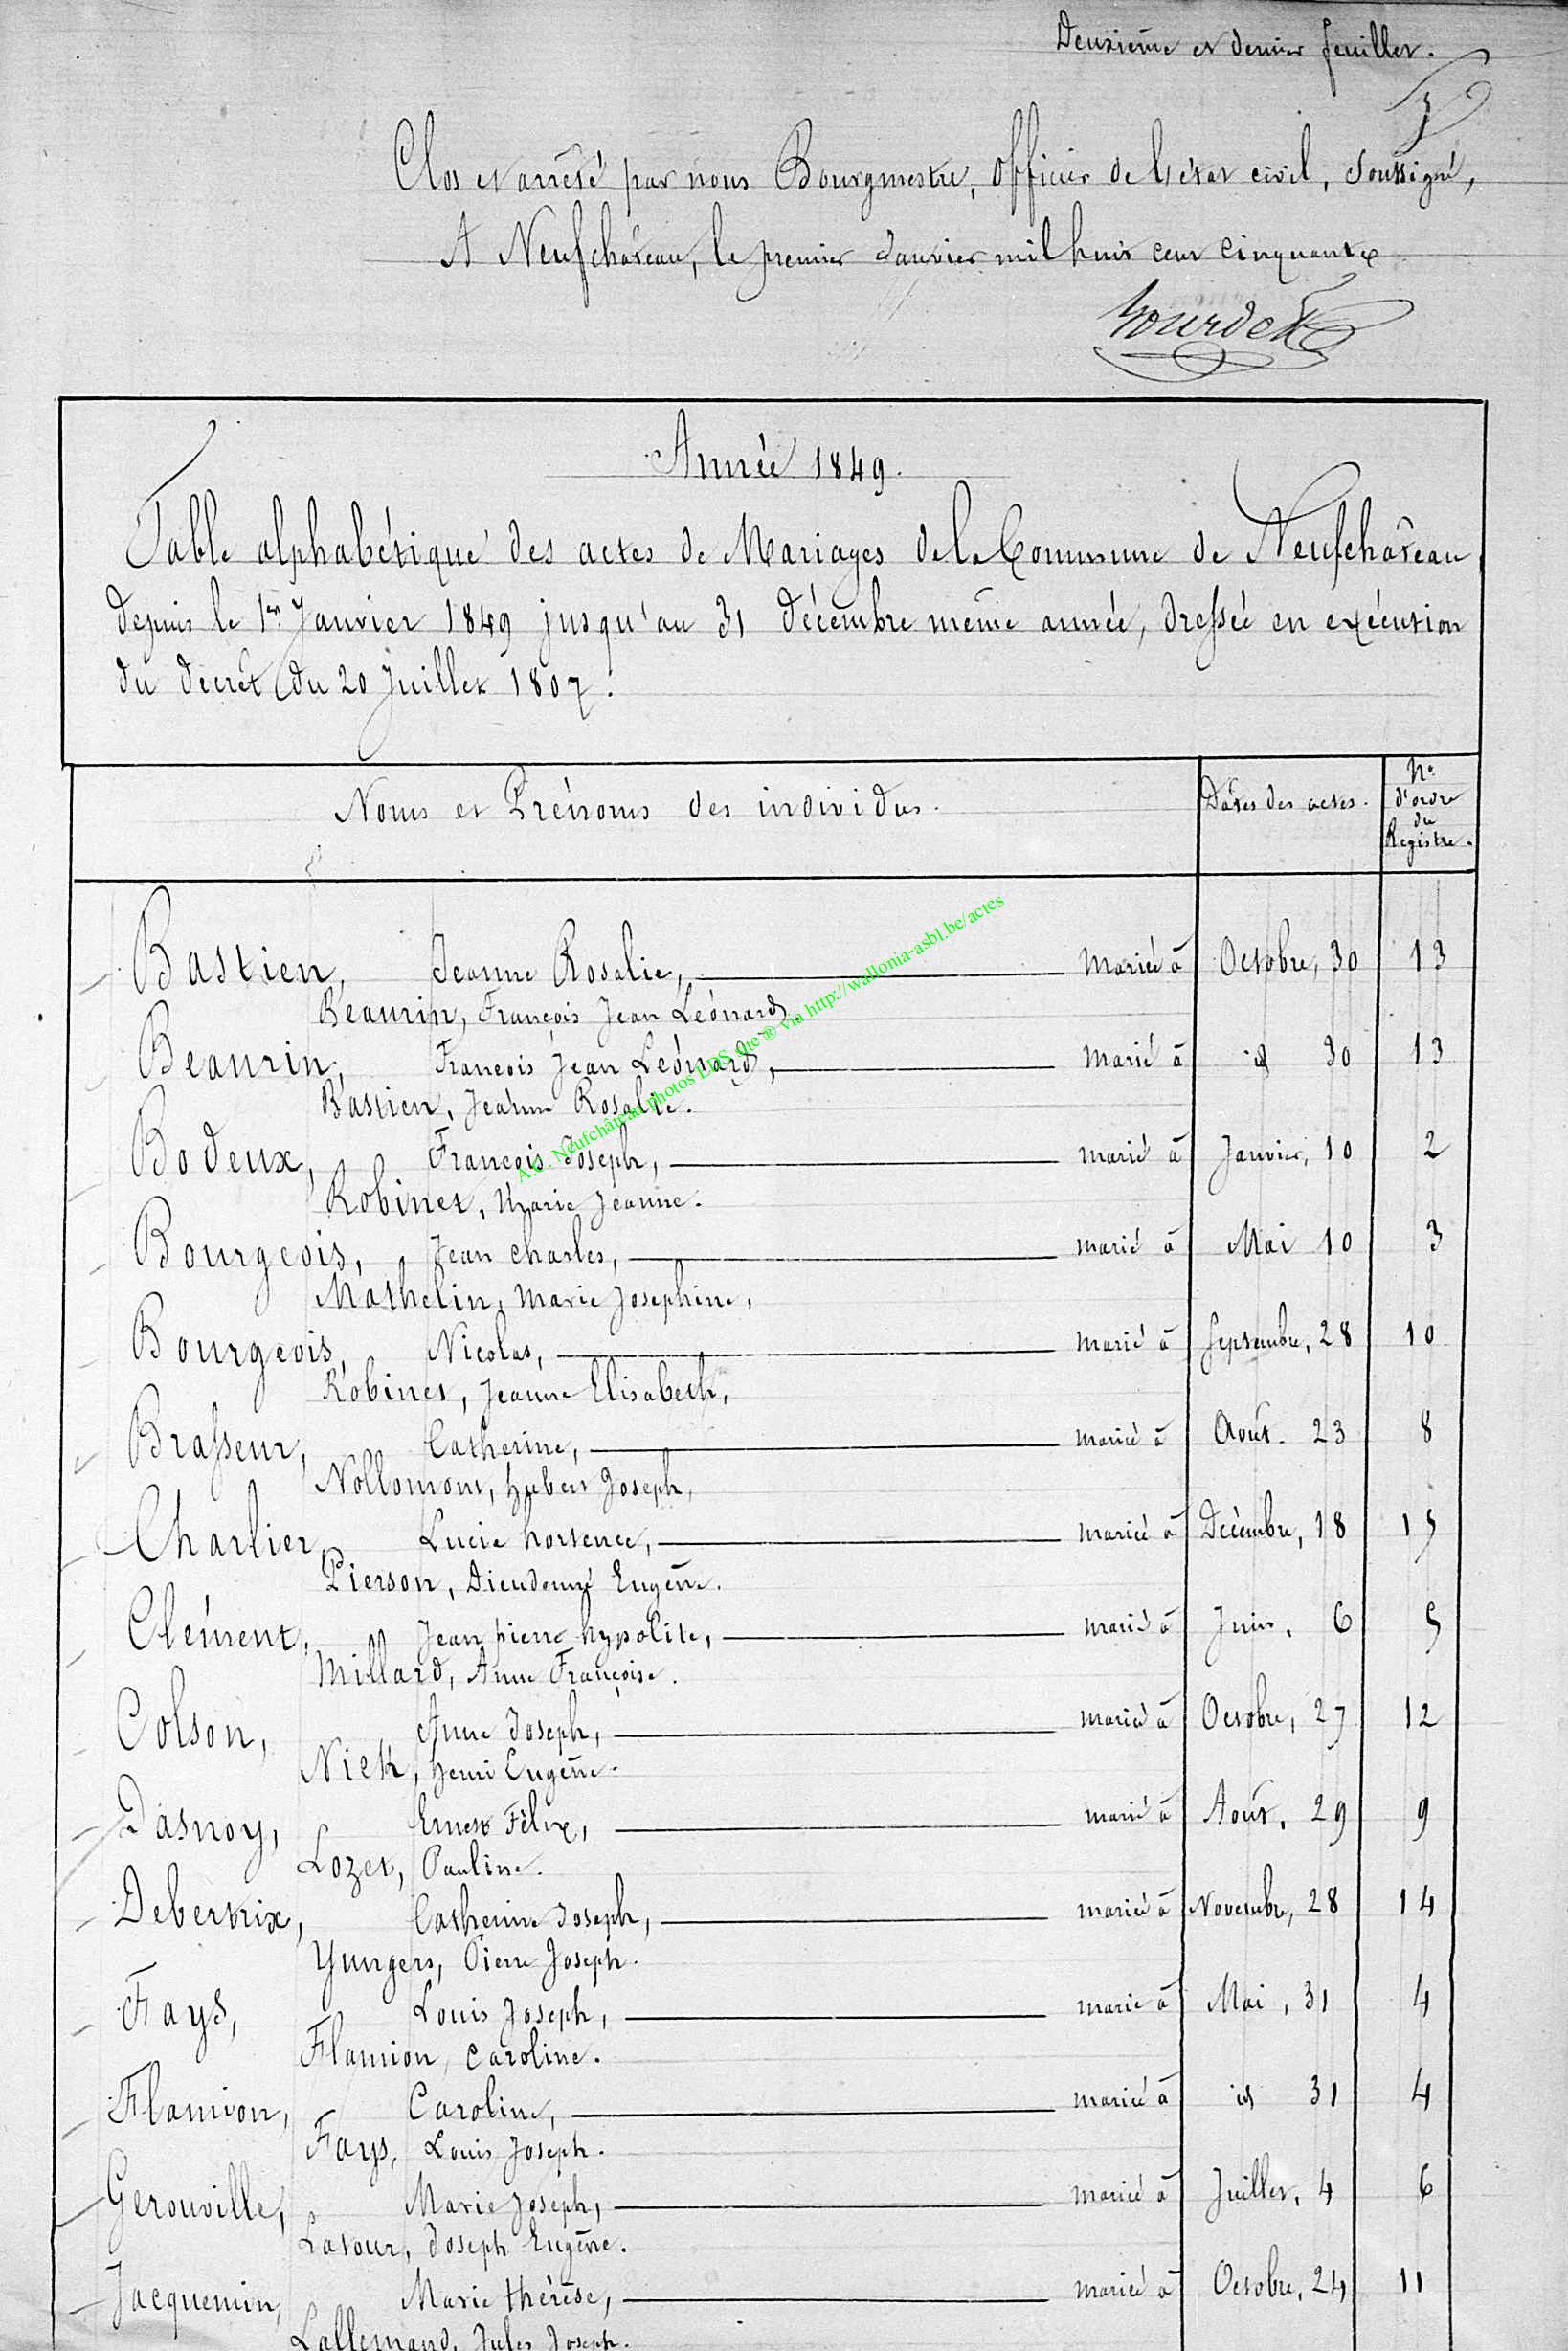 Deuxième et dernier feuillet.
Clos et arrêté par nous Bourgmestre, Officier de l'état civil, soussigné,
A Neufchâteau, le premier Janvier mil huit cent cinquante
Année 1849.
Table alphabétique des actes de Mariages de la Commune de Neufchâteau,
depuis le 1er Janvier 1849 jusqu'au 31 décembre même année, dressée en exécution
du décret du 20 Juillet 1807.
Noms et Prénoms des individus. Dates des actes. No d'ordre du Registre.
Bastien, Jeanne Rosalie, mariée à Octobre, 30 13
Beaurin, François Jean Léonard,
Beaurin, François Jean Léonard, marié à id 30 13
Bastien, Jeanne Rosalie.
Bodeux, François Joseph, marié à Janvier, 10 2
Robinet, Marie Jeanne.
Bourgeois, Jean Charles, marié à Mai 10 3
Mathelin, Marie Josephine,
Bourgeois, Nicolas, marié à Septembre, 28 10
Robinet, Jeanne Elisabeth,
Brasseur, Catherine, mariée à Août. 23 8
Nollomont, Hubert Joseph,
Charlier, Lucie hortence, mariée à Décembre, 18 15
Pierson, Dieudonné Eugène.
Clément, Jean pierre hypolite, marié à Juin, 6 5
Millard, Anne Françoise.
Colson, Anne Joseph, mariée à Octobre, 27 12
Niek, Henri Eugène.
Dasnoy, Ernest Félix, marié à Août, 29 9
Lozet, Pauline.
Debertrix, Catherine Joseph, mariée à Novembre, 28 14
Yungers, Pierre Joseph.
Fays, Louis Joseph, marié à Mai, 31 4
Flamion, Caroline.
Flamion, Caroline, mariée à id 31 4
Fays, Louis Joseph.
Gerouville, Marie Joseph, mariée à Juillet, 4 6
Latour, Joseph Eugène.
Jacquemin, Marie thérèse, mariée à Octobre, 24 11
Lallemand, Jules Joseph.